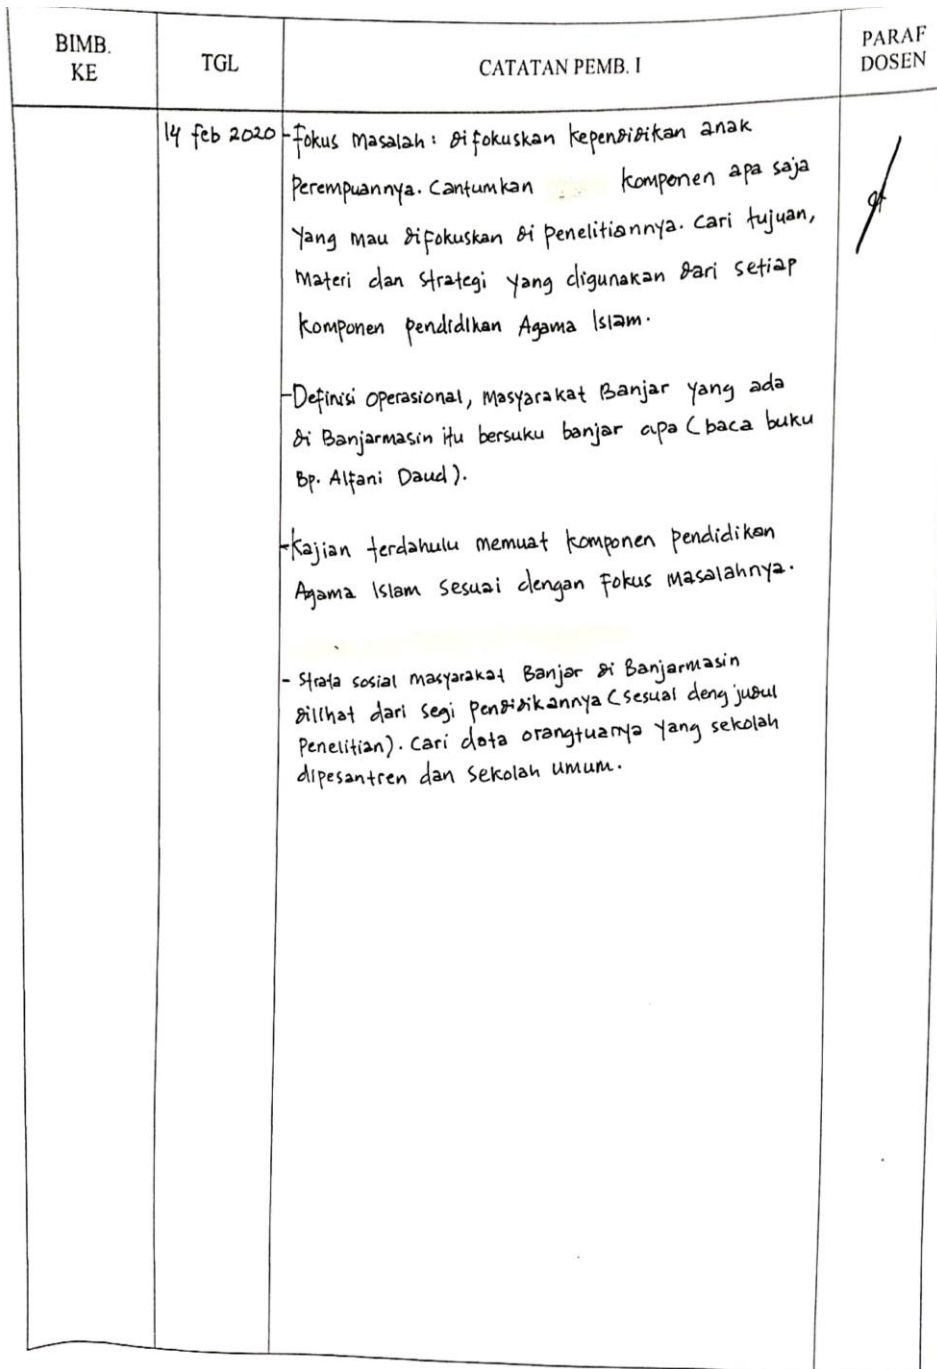 BIMB.
KE
TGL
CATATAN PEMB. I
PARAF
DOSEN
14 feb 2020
- Fokus Masalah : difokuskan kependidikan anak
Perempuannya. Cantumkan komponen apa saja
Yang mau difokuskan di penelitiannya. Cari tujuan,
Materi dan Strategi yang digunakan dari setiap
komponen pendidikan Agama Islam.
- Definisi operasional, Masyarakat Banjar yang ada
di Banjarmasin itu bersuku banjar apa (baca buku
Bp. Alfani Daud).
- Kajian terdahulu memuat komponen pendidikan
Agama Islam sesuai dengan Fokus Masalahnya.
- Strata sosial masyarakat Banjar di Banjarmasin
dilihat dari segi pendidikannya (sesuai deng judul
Penelitian). Cari data orangtuanya yang sekolah
dipesantren dan sekolah umum.